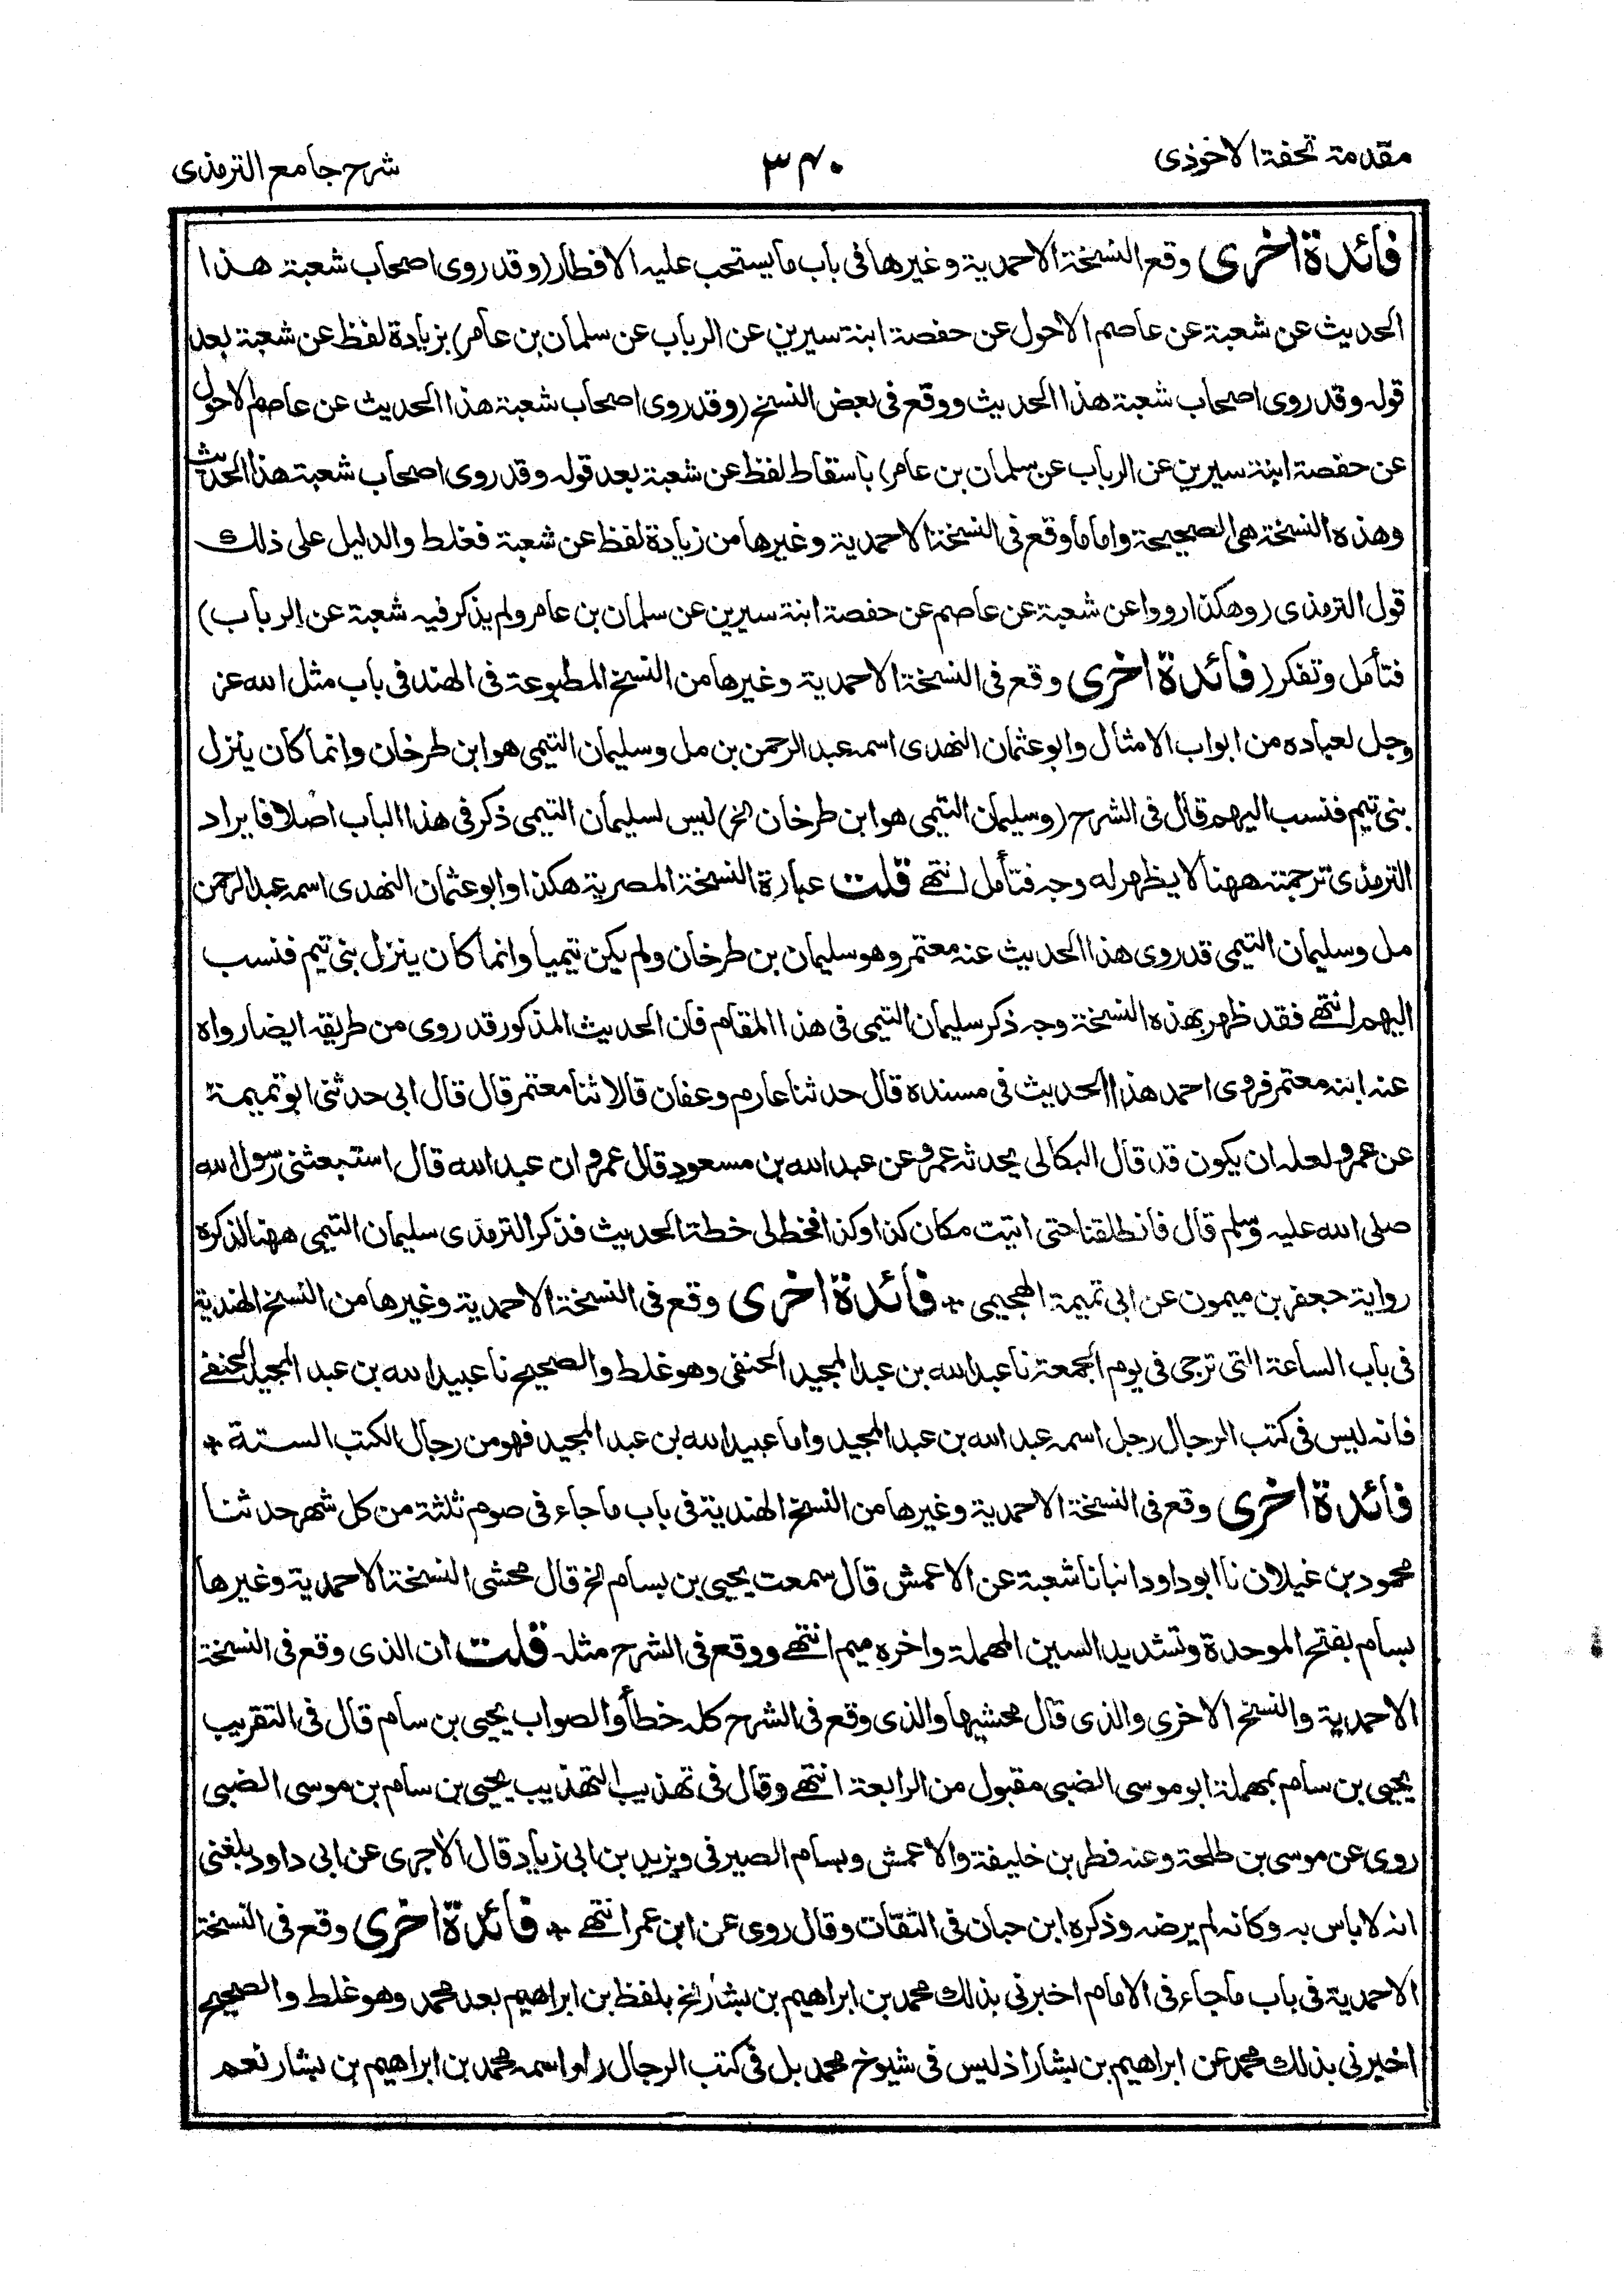 مقدمة تحفة الاحوذي
٣٤٠
شرح جامع الترمذى
فائدة اخرى وقع النسخة الاحمدية وغيرها فى باب ما يستحب عليه الافطار (وقد روى اصحاب شعبة هذا
الحديث عن شعبة عن عاصم الاحول عن حفصة ابنة سيرين عن الرباب عن سلمان بن عامر) بزيادة لفظ عن شعبة بعد
قوله وقد روى اصحاب شعبة هذا الحديث ووقع فى بعض النسخ (وقد روى اصحاب شعبة هذا الحديث عن عاصم الاحول
عن حفصة ابنة سيرين عن الرباب عن سلمان بن عامر) باسقاط لفظ عن شعبة بعد قوله وقد روى اصحاب شعبة هذا الحديث
وهذه النسخة هى الصحيحة واما ما وقع فى النسخة الاحمدية وغيرها من زيادة لفظ عن شعبة فغلط والدليل على ذلك
قول الترمذى (وهكذا رووا عن شعبة عن عاصم عن حفصة ابنة سيرين عن سلمان بن عامر ولم يذكر فيه شعبة عن الرباب)
فتأمل وتفكر (فائدة اخرى وقع فى النسخة الاحمدية وغيرها من النسخ المطبوعة فى الهند فى باب مثل الله عز
وجل لعباده من ابواب الامثال وابو عثمان النهدى اسمه عبد الرحمن بن مل وسليمان التيمى هو ابن طرخان وانما كان ينزل
بنى تيم فنسب اليهم قال فى الشرح (وسليمان التيمى هو ابن طرخان الخ) ليس لسليمان التيمى ذكر فى هذا الباب اصلا فايراد
الترمذى ترجمته ههنا لا يظهر له وجه فتأمل انتهے قلت عبارة النسخة المصرية هكذا وابو عثمان النهدى اسمه عبد الرحمن
مل وسليمان التيمى قد روى هذا الحديث عنه معتمر وهو سليمان بن طرخان ولم يكن تيميا وانما كان ينزل بنى تيم فنسب
اليهم انتهے فقد ظهر بهذه النسخة وجه ذكر سليمان التيمى فى هذا المقام فان الحديث المذكور قد روى من طريقه ايضا رواه
عنه ابنه معتمر فروى احمد هذا الحديث فى مسنده قال حدثنا عارم وعفان قالا ثنا معتمر قال قال ابى حدثنى ابو تميمة
عن عمرو لعله ان يكون قد قال البكالى يحدثه عمرو عن عبد الله بن مسعود قال عمرو ان عبد الله قال استبعثنى رسول الله
صلى الله عليه وسلم قال فانطلقنا حتى اتيت مكان كذا وكذا فخط لى خطة الحديث فذكر الترمذى سليمان التيمى ههنا لذكره
رواية جعفر بن ميمون عن ابى تميمة الهجيمى + فائدة اخرى وقع فى النسخة الاحمدية وغيرها من النسخ الهندية
فى باب الساعة التى ترجى فى يوم الجمعة نا عبد الله بن عبد المجيد الحنفى وهو غلط والصحيح نا عبيد الله بن عبد المجيد الحنفے
فانه ليس فى كتب الرجال رجل اسمه عبد الله بن عبد المجيد واما عبيد الله بن عبد المجيد فهو من رجال الكتب الستة +
فائدة اخرى وقع فى النسخة الاحمدية وغيرها من النسخ الهندية فى باب ما جاء فى صوم ثلثة من كل شهر حدثنا
محمود بن غيلان نا ابو داود انبانا شعبة عن الاعمش قال سمعت يحيى بن بسام الخ قال محشى النسخة الاحمدية وغيرها
بسام بفتح الموحدة وتشديد السين المهملة واخره ميم انتهے ووقع فى الشرح مثله قلت ان الذى وقع فى النسخة
الاحمدية والنسخ الاخرى والذى قال محشيها والذى وقع فى الشرح كله خطأ والصواب يحيى بن سام قال فى التقريب
يحيى بن سام بمهملة ابو موسى الضبى مقبول من الرابعة انتهے وقال فى تهذيب التهذيب يحيى بن سام بن موسى الضبى
روى عن موسى بن طلحة وعنه فطر بن خليفة والاعمش وبسام الصيرفى ويزيد بن ابى زياد قال الآجرى عن ابى داود بلغنى
انه لا باس به وكانه لم يرضه وذكره ابن حبان فى الثقات وقال روى عن ابن عمر انتهے + فائدة اخرى وقع فى النسخة
الاحمدية فى باب ما جاء فى الامام اخبرنى بذلك محمد بن ابراهيم بن بشار الخ بلفظ بن ابراهيم بعد محمد وهو غلط والصحيح
اخبرنى بذلك محمد عن ابراهيم بن بشار اذ ليس فى شيوخ محمد بل فى كتب الرجال راو اسمه محمد بن ابراهيم بن بشار نعم